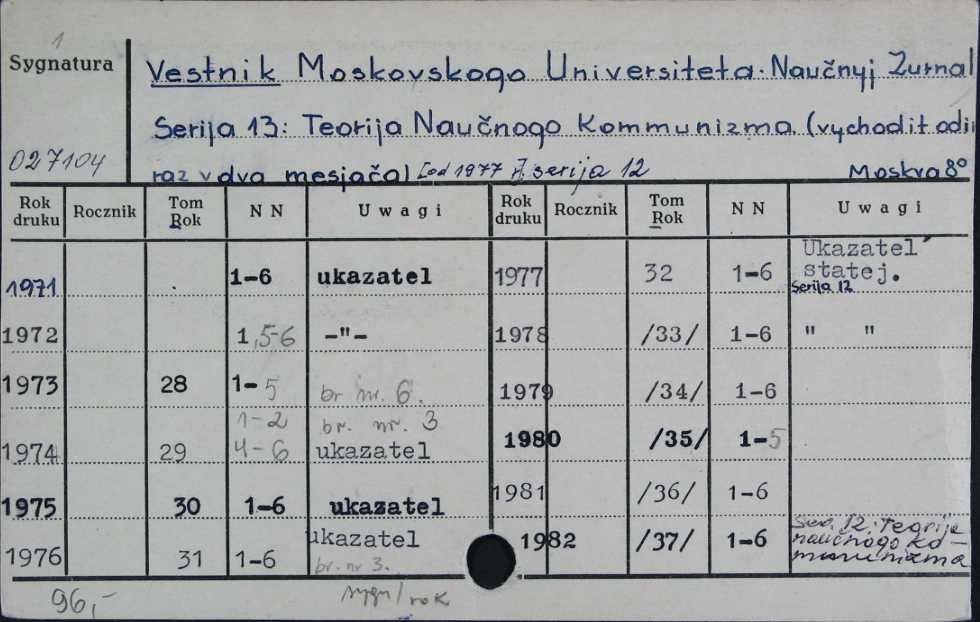 1
Sygnatura
Vestnik Moskovskogo Universiteta. Naučnyj Žurnal
Serija 13: Teorija Naučnogo Kommunizma. (vychodit odin
027104
raz v dva mesjača) [od 1977 r] serija 12 Moskva 8º
Rok druku Rocznik Tom Rok NN Uwagi Rok druku Rocznik Tom Rok NN Uwagi
1971 1-6 ukazatel 1977 32 1-6 Ukazatel' statej. Serija 12
1972 1,5-6 -"- 1978 /33/ 1-6 " "
1973 28 1-5 br nr. 6. 1979 /34/ 1-6
1974 29 1-2 4-6 br. nr. 3 ukazatel 1980 /35/ 1-5
1975 30 1-6 ukazatel 1981 /36/ 1-6
1976 31 1-6 ukazatel br. nr 3. 1982 /37/ 1-6 Ser. 12. Teorija naučnogo kommunizma
96,- sygn/rok